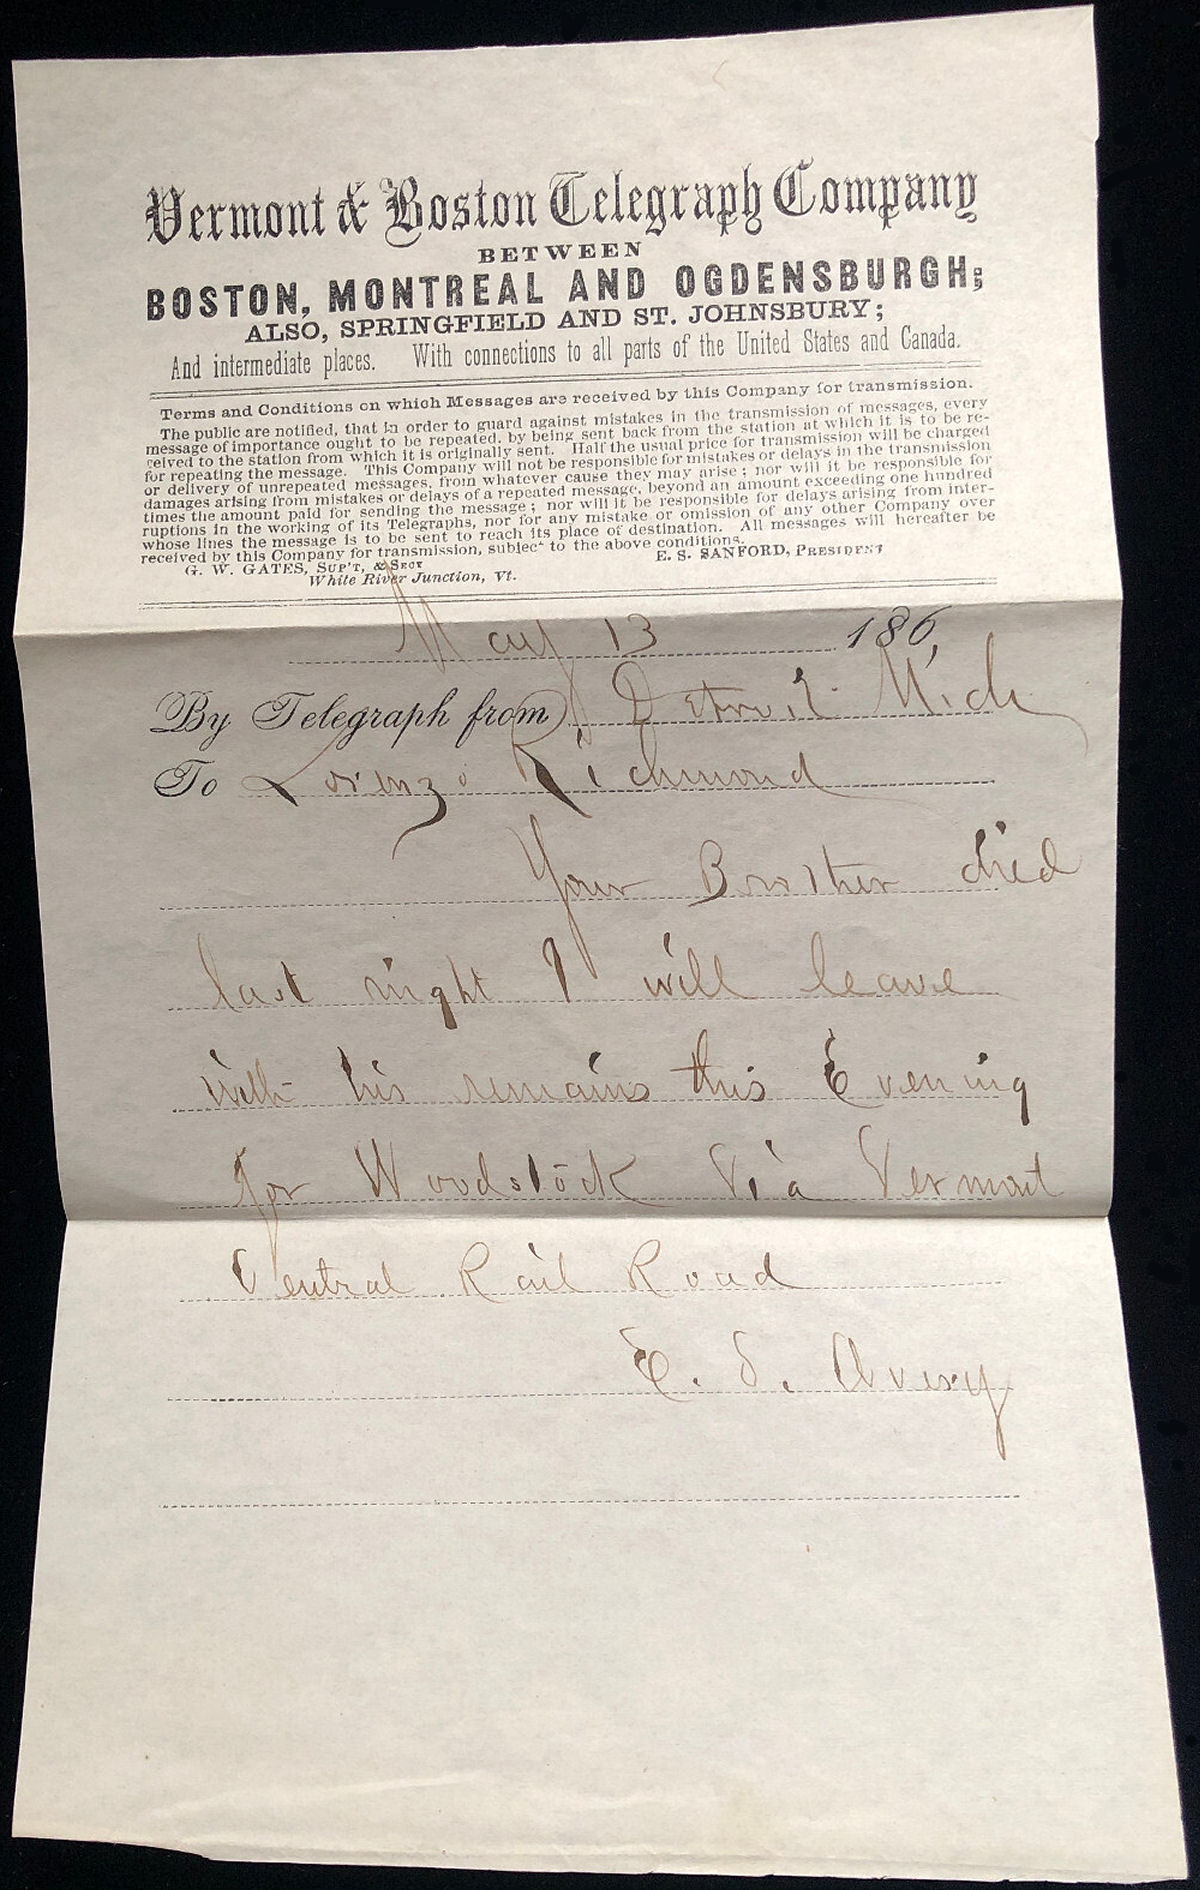 Vermont & Boston Telegraph Company
BETWEEN
BOSTON, MONTREAL AND OGDENSBURGH;
ALSO, SPRINGFIELD AND ST. JOHNSBURY;
And intermediate places. With connections to all parts of the United States and Canada.
Terms and Conditions on which Messages are received by this Company for transmission.
The public are notified, that in order to guard against mistakes in the transmission of messages, every
message of importance ought to be repeated, by being sent back from the station at which it is to be re-
ceived to the station from which it is originally sent. Half the usual price for transmission will be charged
for repeating the message. This Company will not be responsible for mistakes or delays in the transmission
or delivery of unrepeated messages, from whatever cause they may arise; nor will it be responsible for
damages arising from mistakes or delays of a repeated message, beyond an amount exceeding one hundred
times the amount paid for sending the message; nor will it be responsible for delays arising from inter-
ruptions in the working of its Telegraphs, nor for any mistake or omission of any other Company over
whose lines the message is to be sent to reach its place of destination. All messages will hereafter be
received by this Company for transmission, subject to the above conditions.
G. W. GATES, SUP'T, & SECY E. S. SANFORD, PRESIDENT
White River Junction, Vt.
May 13 186,
By Telegraph from Detroit Mich
To Lorenzo Richmond
Your Brother died
last night I will leave
with his remains this Evening
for Woodstock Via Vermont
Central Rail Road
E. S. Avery